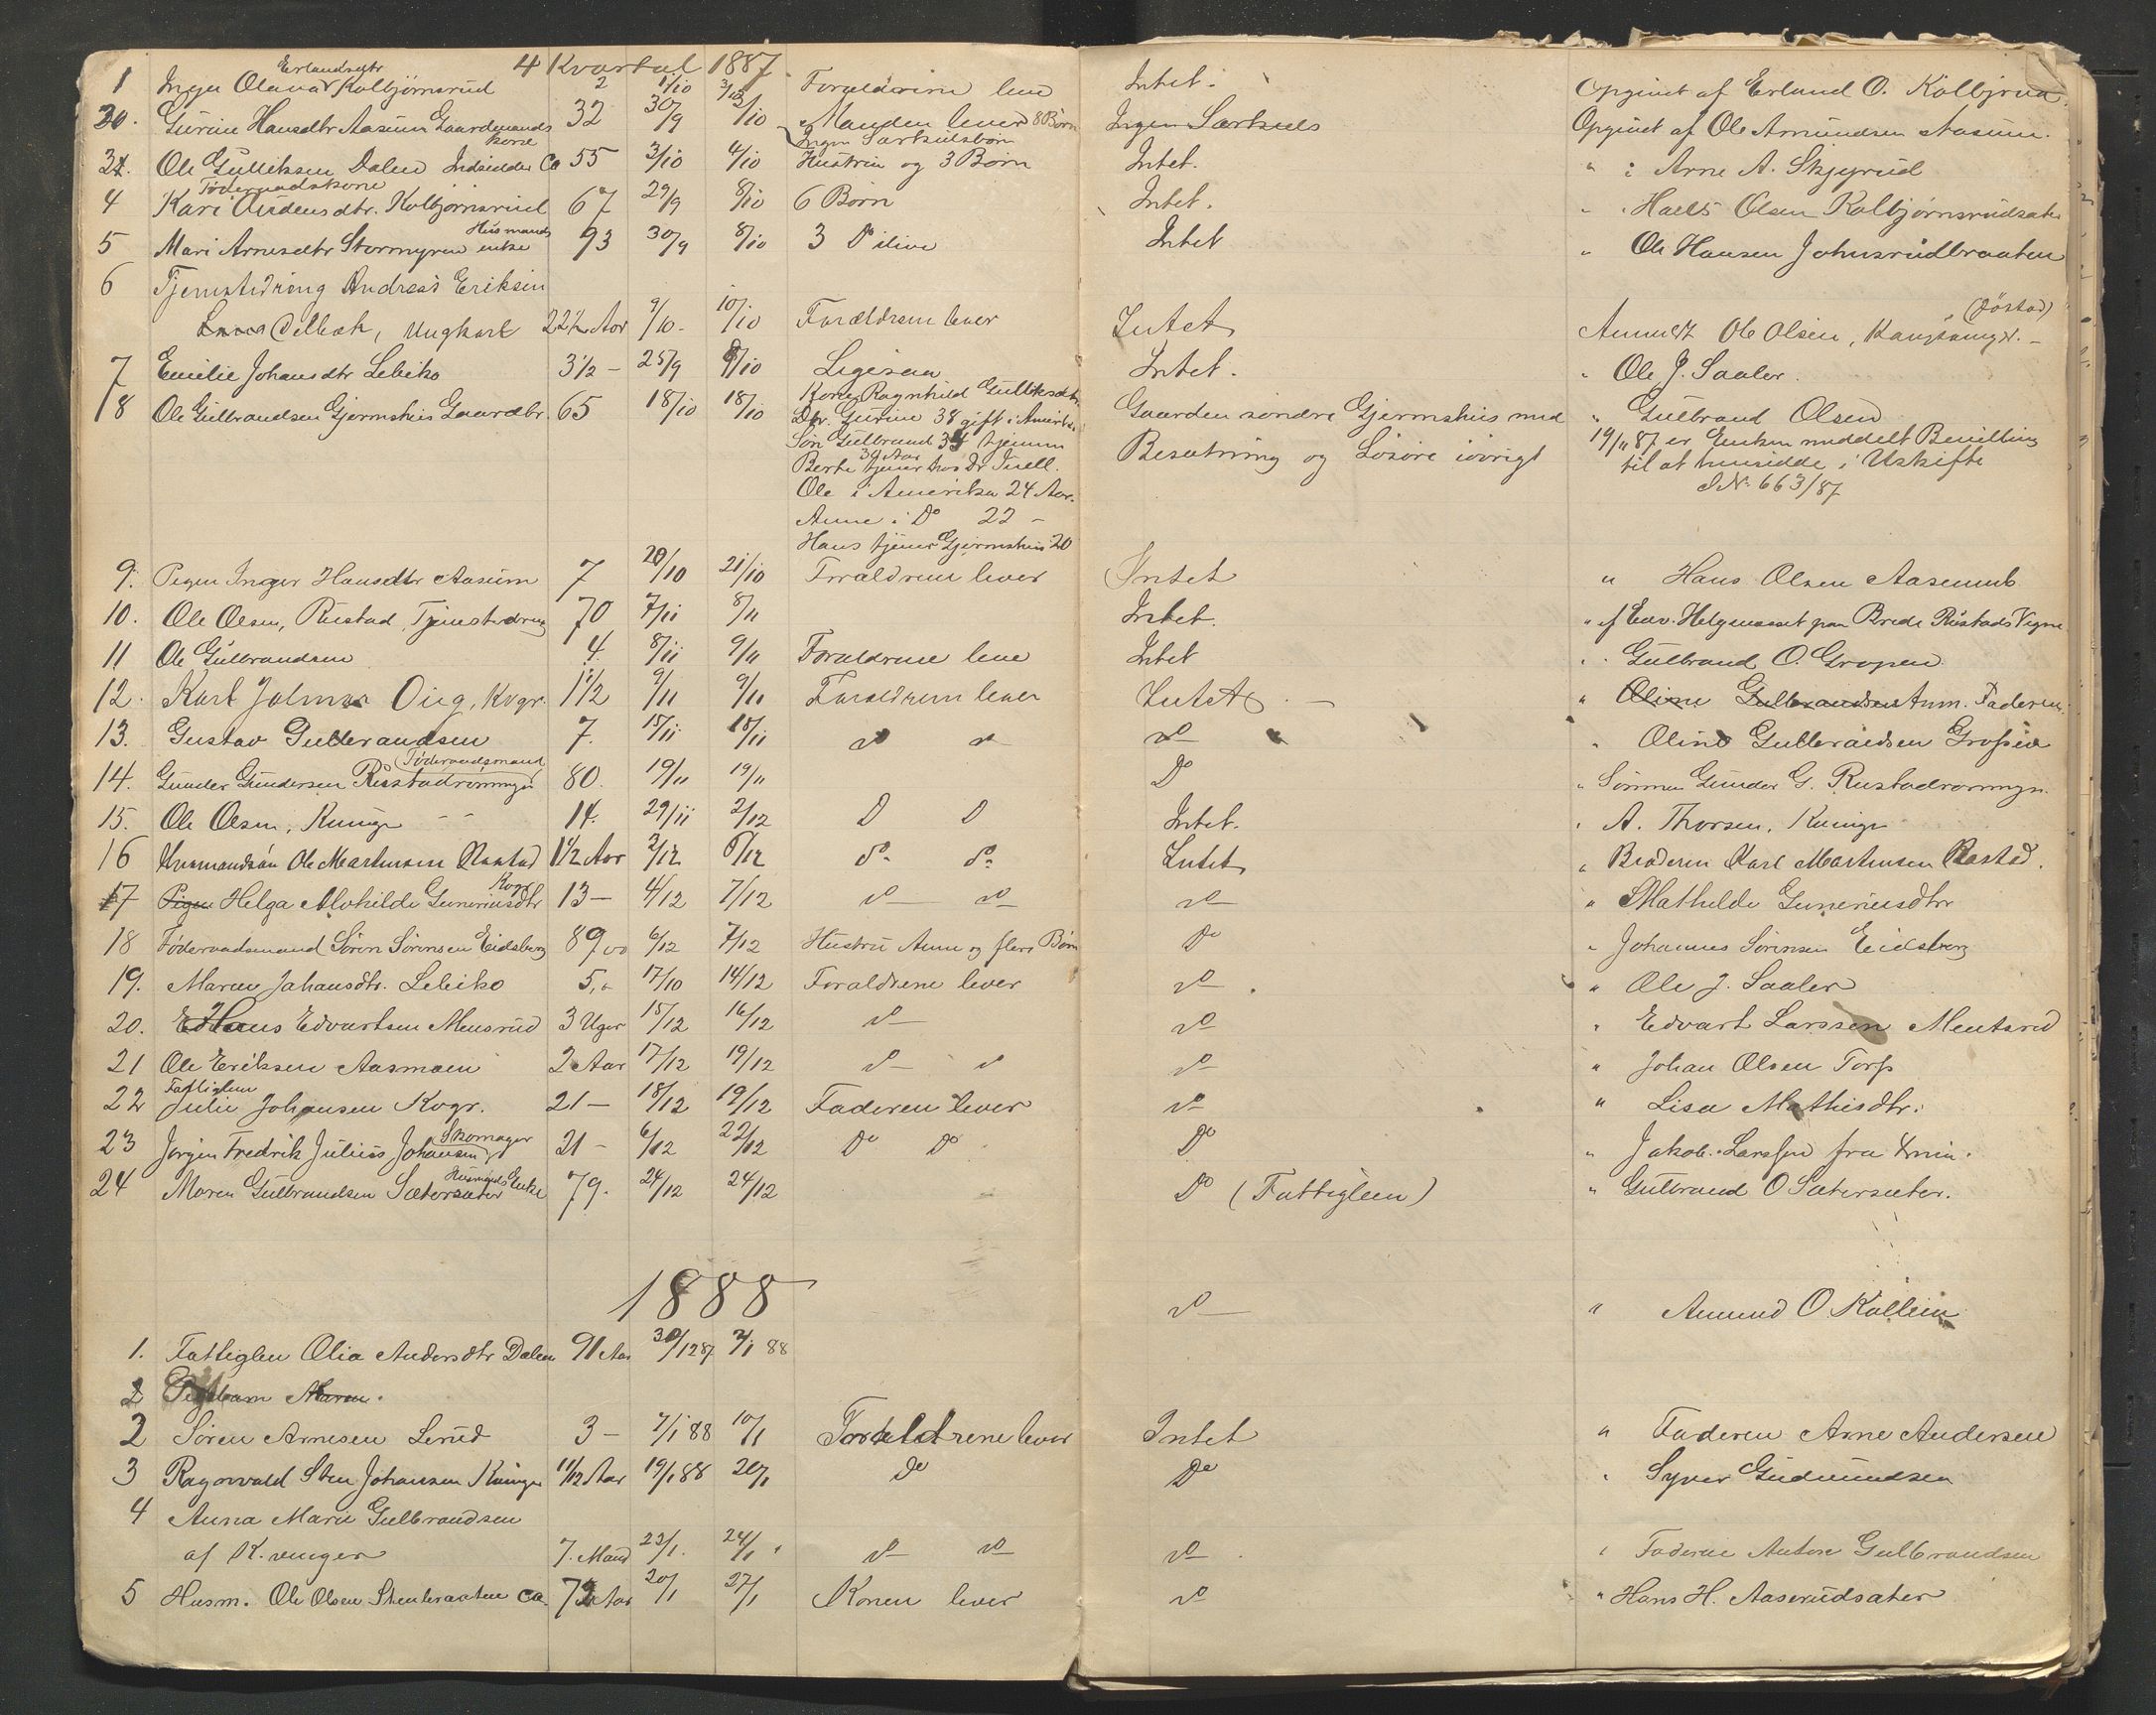 4 Kvartal 1887.
Erlandsdtr
1 Inger Olava Kolbjørnsrud 2 1/10 3/10 Forældrene leve Intet. Opgivet af Erland O. Kolbjrud.
20. Gurine Hansdtr Aasum Gaardmands kone 32 30/9 3/10 Manden lever 8 Børn Ingen Særkuls Opgivet af Ole Amundsen Aasum.
Ingen Særkulsbørn
3. Ole Gulliksen Dalen Indsidder Ca 55 3/10 4/10 Hustru og 3 Børn Intet. " : Arne A. Skjyrud
Føderaadskone
4 Kari Audensdtr. Kolbjørnsrud 67 29/9 8/10 6 Børn Intet. " Halvor Olsen Kolbjørnsrudsæter
Husmands
5 Mari Arnesdtr Stormyren enke 93 30/9 8/10 3 Do ilive Intet " Ole Hansen Johnsrudbraaten
6 Tjenestedreng Andreas Eriksen
Delbæk, Ungkarl 22½ Aar 9/10 10/10 Forældrene lever Intet Anmeldt Ole Olsen, Kongsvinger. (Jøstad)
7 Emilie Johansdtr Lebiko 3½ – 25/9 9/10 Ligesaa Intet. " Ole J. Saaler.
8 Ole Gulbrandsen Gjermshus Gaardbr. 65 18/10 18/10 Kone Ragnhild Gulliksdtr. Gaarden søndre Gjermshus med " Gulbrand Olsen
Dtr. Gurine 38 gift i Amerika
Søn Gulbrand 34 hjemme Besætning og Løsøre iøvrigt 19/11 87 er Enken meddelt Bevilling
Berte 30 Aar tjener hos Dr Juell. til at hensidde i Uskifte
Ole i Amerika 24 Aar. J.N. 663/87
Anne i Do 22 –
Hans tjener Gjermshus 20
9. Pigen Inger Hansdtr Aasum 7 20/10 21/10 Forældrene lever Intet " Hans Olsen Aasum
10. Ole Olsen, Rustad, Tjenestedreng 70 7/11 8/11 Intet. " af Edv. Helgenæsset paa Brede Rustads Vegne
11 Ole Gulbrandsen 4. 8/11 9/11 Forældrene leve Intet " Gulbrand O. Gropen
12. Karl Jalmar Oug, Kvgr. 1½ 9/11 9/11 Forældrene lever Intet – " Oline Gulbrandsen Anm. Faderen.
13. Gustav Gulbrandsen 7. 15/11 18/11 do do do " Oline Gulbrandsen Gropen
Føderaadsmand
14. Gunder Gundersen Rustadrømnyen 80. 19/11 19/11 Do " Sønnen Gunder G. Rustadrømnyn.
15. Ole Olsen, Kuinge 14. 29/11 2/12 D D Intet. " A. Thorsen, Kuinge
16 Husmandsøn Ole Martinsen Rastad 1½ Aar 2/12 6/12 do do Intet " Broderen Karl Martinsen Rastad.
17 Pigen Helga Mathilde Guneriusdtr Kvgr 13 – 4/12 7/12 do do do " Mathilde Guneriusdtr
18 Føderaadsmand Søren Sørensen Eidsberg 89 6/12 7/12 Hustru Anne og flere Børn Do " Johannes Sørensen Eidsberg
19. Maren Johansdtr. Lebiko 5. 17/10 14/12 Forældrene lever do. " Ole J. Saaler
20. Hans Edvartsen Mensrud 3 Uger 15/12 16/12 do do " Edvart Larssen Mentsrud
21 Ole Eriksen Aasmoen 2 Aar 17/12 19/12 do do do " Johan Olsen Torp
Fattiglem
22 Julie Johansen Kvgr. 21 – 18/12 19/12 Faderen lever do " Lisa Mathisdtr.
23 Jørgen Fredrik Julius Johansen Skomager 21 – 6/12 22/12 Do Do Do " Jakob Larssen fra
24 Maren Gulbrandsen Sætersæter Husmands Enke 79. 24/12 24/12 Do (Fattiglem) " Gulbrand O Sætersæter.
1888
do " Amund O. Kollein
1. Fattiglem Olia Andersdtr Dalen 91 Aar 30/12 87 2/1 88
2 Pigebarn Maren.
2 Søren Arnesen Lerud 3 – 7/1 88 10/1 Forældrene lever Intet " Faderen Arne Andersen
3 Ragnvald Sten Johansen Kuinge 11/12 Aar 19/1 88 20/1 Do Do " Syver Gudmundsen
4 Anna Marie Gulbrandsen
af K.vinger 7. Maand 23/1. 24/1 do do do " Faderen Anton Gulbrandsen
5 Husm. Ole Olsen Stenbraaten ca. 72 Aar 20/1 27/1 Konen lever do " Hans H. Aaserudsæter